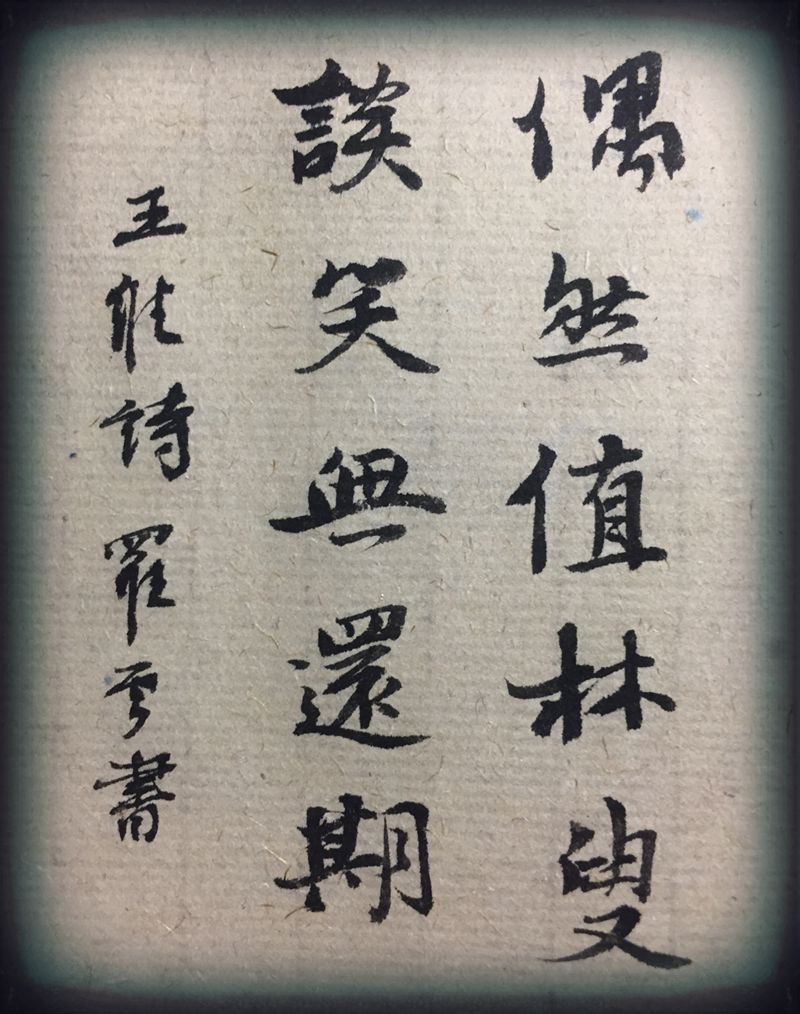 偶然值林叟
談笑無還期
王維詩 羅雲書